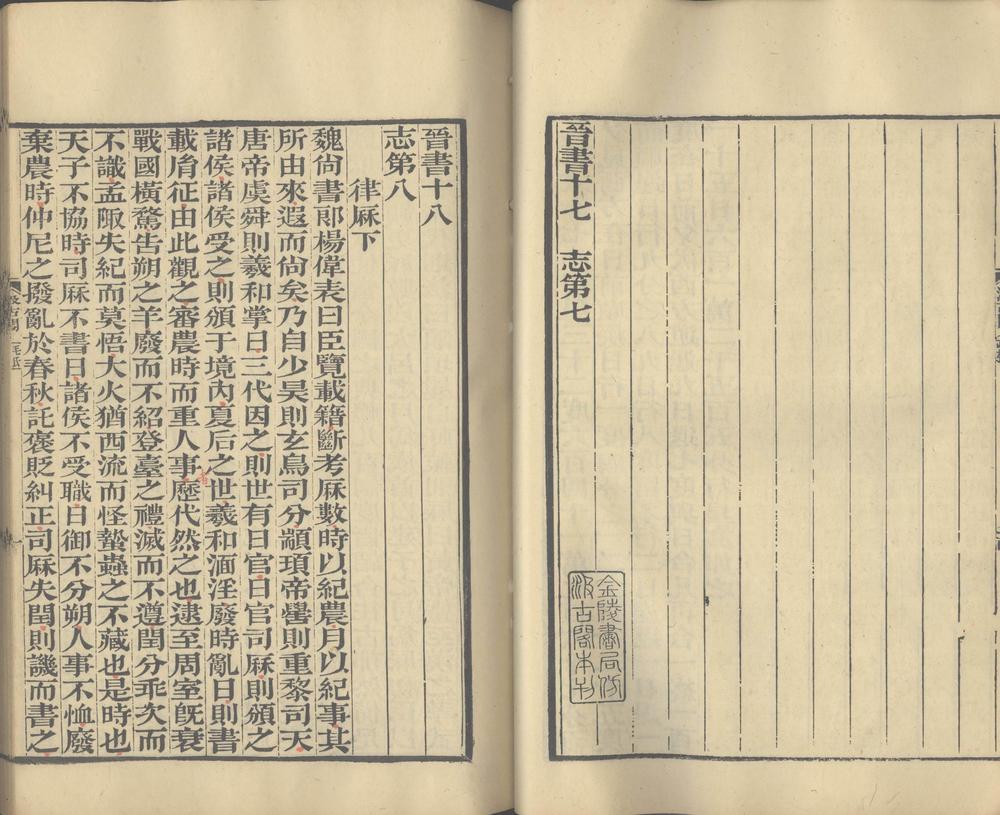 晉書十七　志第七
金陵書局仿
汲古閣本刊
晉書十八
志第八
律厤下
魏尙書郞楊偉表曰臣覽載籍斷考厤數時以紀農月以紀事其
所由來遐而尙矣乃自少昊則玄鳥司分顓頊帝嚳則重黎司天
唐帝虞舜則羲和掌日三代因之則世有日官日官司厤則頒之
諸侯諸侯受之則頒于境內夏后之世羲和湎淫廢時亂日則書
載胤征由此觀之審農時而重人事歷代然之也逮至周室旣衰
戰國橫騖吿朔之羊廢而不紹登臺之禮滅而不遵閏分乖次而
不識孟陬失紀而莫悟大火猶西流而怪蟄蟲之不藏也是時也
天子不協時司厤不書日諸侯不受職日御不分朔人事不恤廢
棄農時仲尼之撥亂於春秋託褒貶糾正司厤失閏則譏而書之